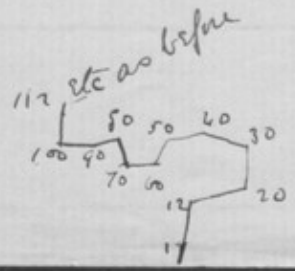 112 etc as before
100 90 80 70 60 50 40 30
12 20
1